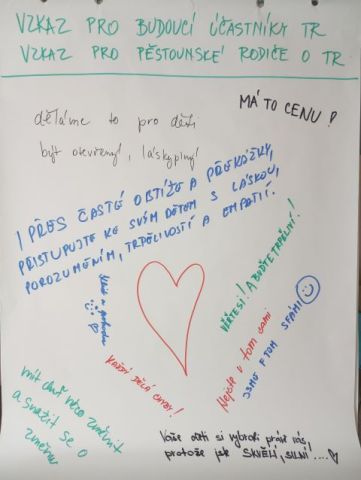 VZKAZ PRO BUDOUCÍ ÚČASTNÍKY TR
VZKAZ PRO PĚSTOUNSKÉ RODIČE O TR
MÁ TO CENU!
děláme to pro děti
být otevřený, láskyplný
I PŘES ČASTÉ OBTÍŽE A PŘEKÁŽKY,
PŘISTUPUJTE KE SVÝM DĚTEM S LÁSKOU,
POROZUMĚNÍM, TRPĚLIVOSTÍ A EMPATIÍ.
Klid a
VĚŘTE SI! A BUĎTE TRPĚLIVÍ!
KAŽDÝ DĚLÁ CHYBY!
Nejste v tom sami
JSME V TOM S VÁMI
mít chuť něco změnit
a snažit se o
změnu
Vaše děti si vybrali právě vás,
protože jste SKVĚLÍ, SILNÍ....